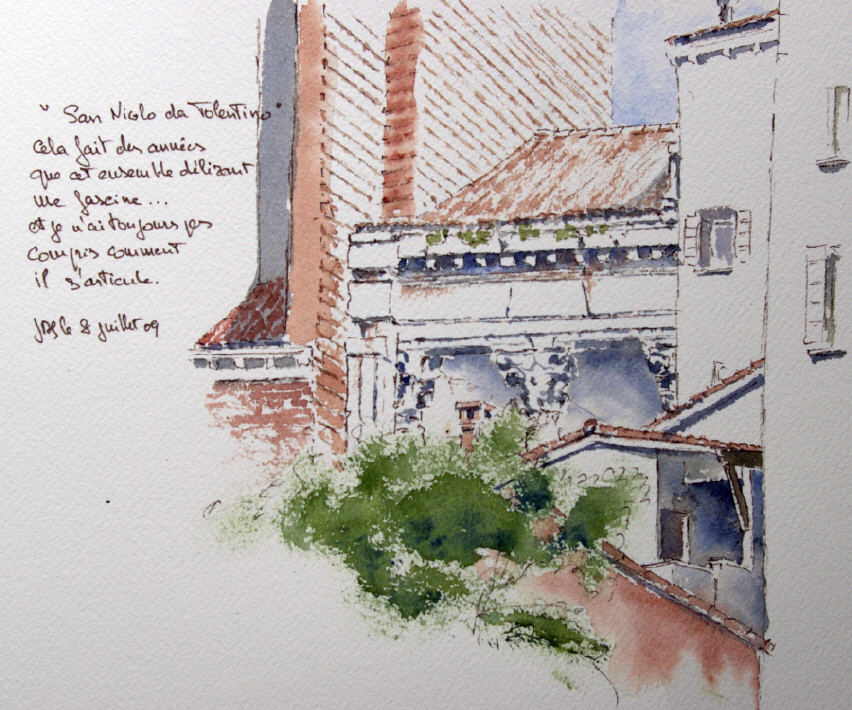 " San Nicolo da Tolentino "
Cela fait des années
que cet ensemble délirant
me fascine...
et je n'ai toujours pas
compris comment
il s'articule.
le 8 juillet 09